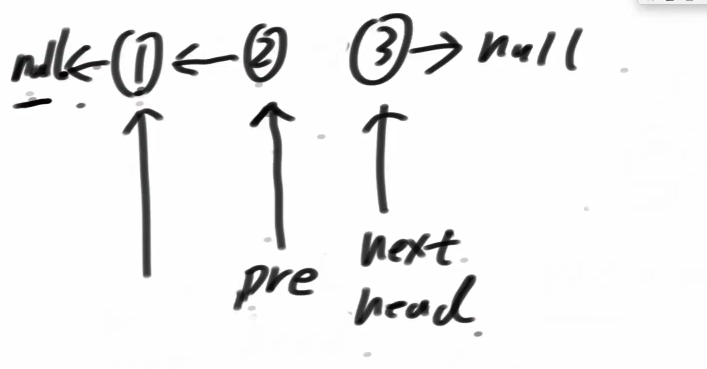 null ← ① ← ② ③ → null
pre
next
head